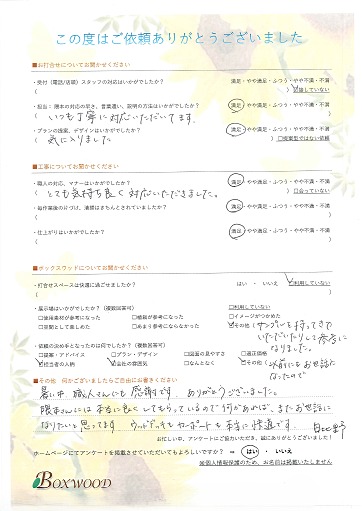 この度はご依頼ありがとうございました
■お打合せについてお聞かせください
・受付（電話/店頭）スタッフの対応はいかがでしたか？ 満足・やや満足・ふつう・やや不満・不満
（ ）
・担当：隈本の対応の早さ、言葉遣い、説明の方法はいかがでしたか？ 満足・やや満足・ふつう・やや不満・不満
（いつも丁寧に対応いただいてます。 ）
・プランの提案、デザインはいかがでしたか？ 満足・やや満足・ふつう・やや不満・不満
（ 気に入りました ）□提案型ではない依頼
■工事についてお聞かせください
・職人の対応、マナーはいかがでしたか？ 満足・やや満足・ふつう・やや不満・不満
（とても気持ち良く対応いただきました。 ）□会っていない
・毎作業後の片づけ、清掃はきちんとされていましたか？ 満足・やや満足・ふつう・やや不満・不満
（ ）
・仕上がりはいかがでしたか？ 満足・やや満足・ふつう・やや不満・不満
（ ）
■ボックスウッドについてお聞かせください
・打合せスペースは快適に過ごせましたか？ はい ・ いいえ □利用していない
（ ）
・展示場はいかがでしたか？（複数回答可） □利用していない
□使用素材が参考になった □植栽が参考になった □イメージがつかめた
□空間として楽しめた □あまり参考にならなかった □その他（サンプルを持ってきて
いただいたりして参考に
なりました。
・依頼の決め手となったのは何でしたか？（複数回答可）
□提案・アドバイス □プラン・デザイン □図面の見やすさ □適正価格
□担当者の人柄 □会社の雰囲気 □なんとなく □その他（以前にもお世話に
なったので
■その他 何かございましたらご自由にお書きください
暑い中、職人さんにも感謝です。ありがとうございました。
隈本さんには本当に良くしてもらっているので何かあれば、またお世話に
なりたいと思ってます。ウッドデッキもカーポートも本当に快適です。
お忙しい中、アンケートにご協力いただき、誠にありがとうございました！
ホームページにてアンケートを掲載させていただいてもよろしいですか？ ⇒ はい ・ いいえ
※個人情報保護のため、お名前は掲載いたしません
BOXWOOD